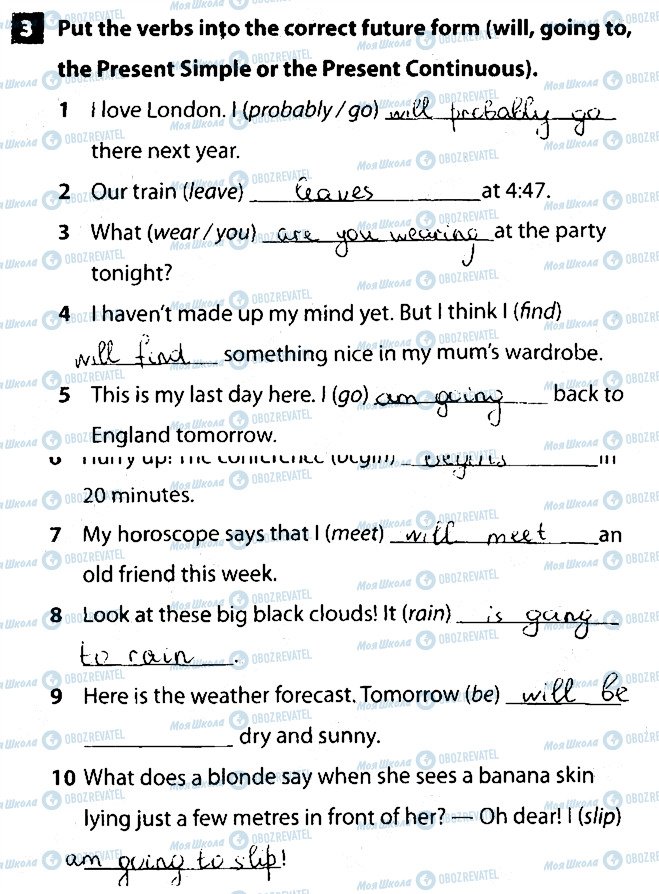 3 Put the verbs into the correct future form (will, going to,
the Present Simple or the Present Continuous).
1 I love London. I (probably / go) will probably go
there next year.
2 Our train (leave) leaves at 4:47.
3 What (wear / you) are you wearing at the party
tonight?
4 I haven't made up my mind yet. But I think I (find)
will find something nice in my mum's wardrobe.
5 This is my last day here. I (go) am going back to
England tomorrow.
6 Hurry up! The conference (begin) begins in
20 minutes.
7 My horoscope says that I (meet) will meet an
old friend this week.
8 Look at these big black clouds! It (rain) is going
to rain.
9 Here is the weather forecast. Tomorrow (be) will be
dry and sunny.
10 What does a blonde say when she sees a banana skin
lying just a few metres in front of her? — Oh dear! I (slip)
am going to slip!
Моя Школа OBOZREVATEL